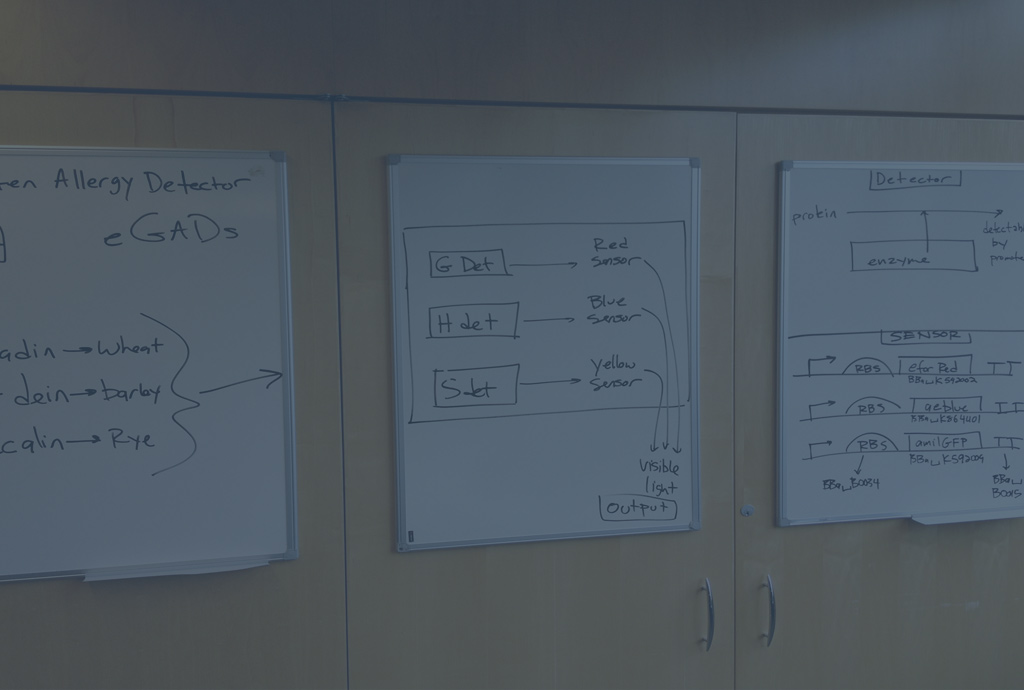 ten Allergy Detector
eGADs
adin → Wheat
dein → barley
calin → Rye
G Det → Red Sensor
H det → Blue Sensor
S det → Yellow Sensor
Visible
light
Output
Detector
protein
detectabl
by
promote
enzyme
SENSOR
RBS efor Red TT
BBa_K592012
RBS aeblue TT
BBa_K864401
RBS amilGFP TT
BBa_K592009
BBa_B0034
BBa_
B0015